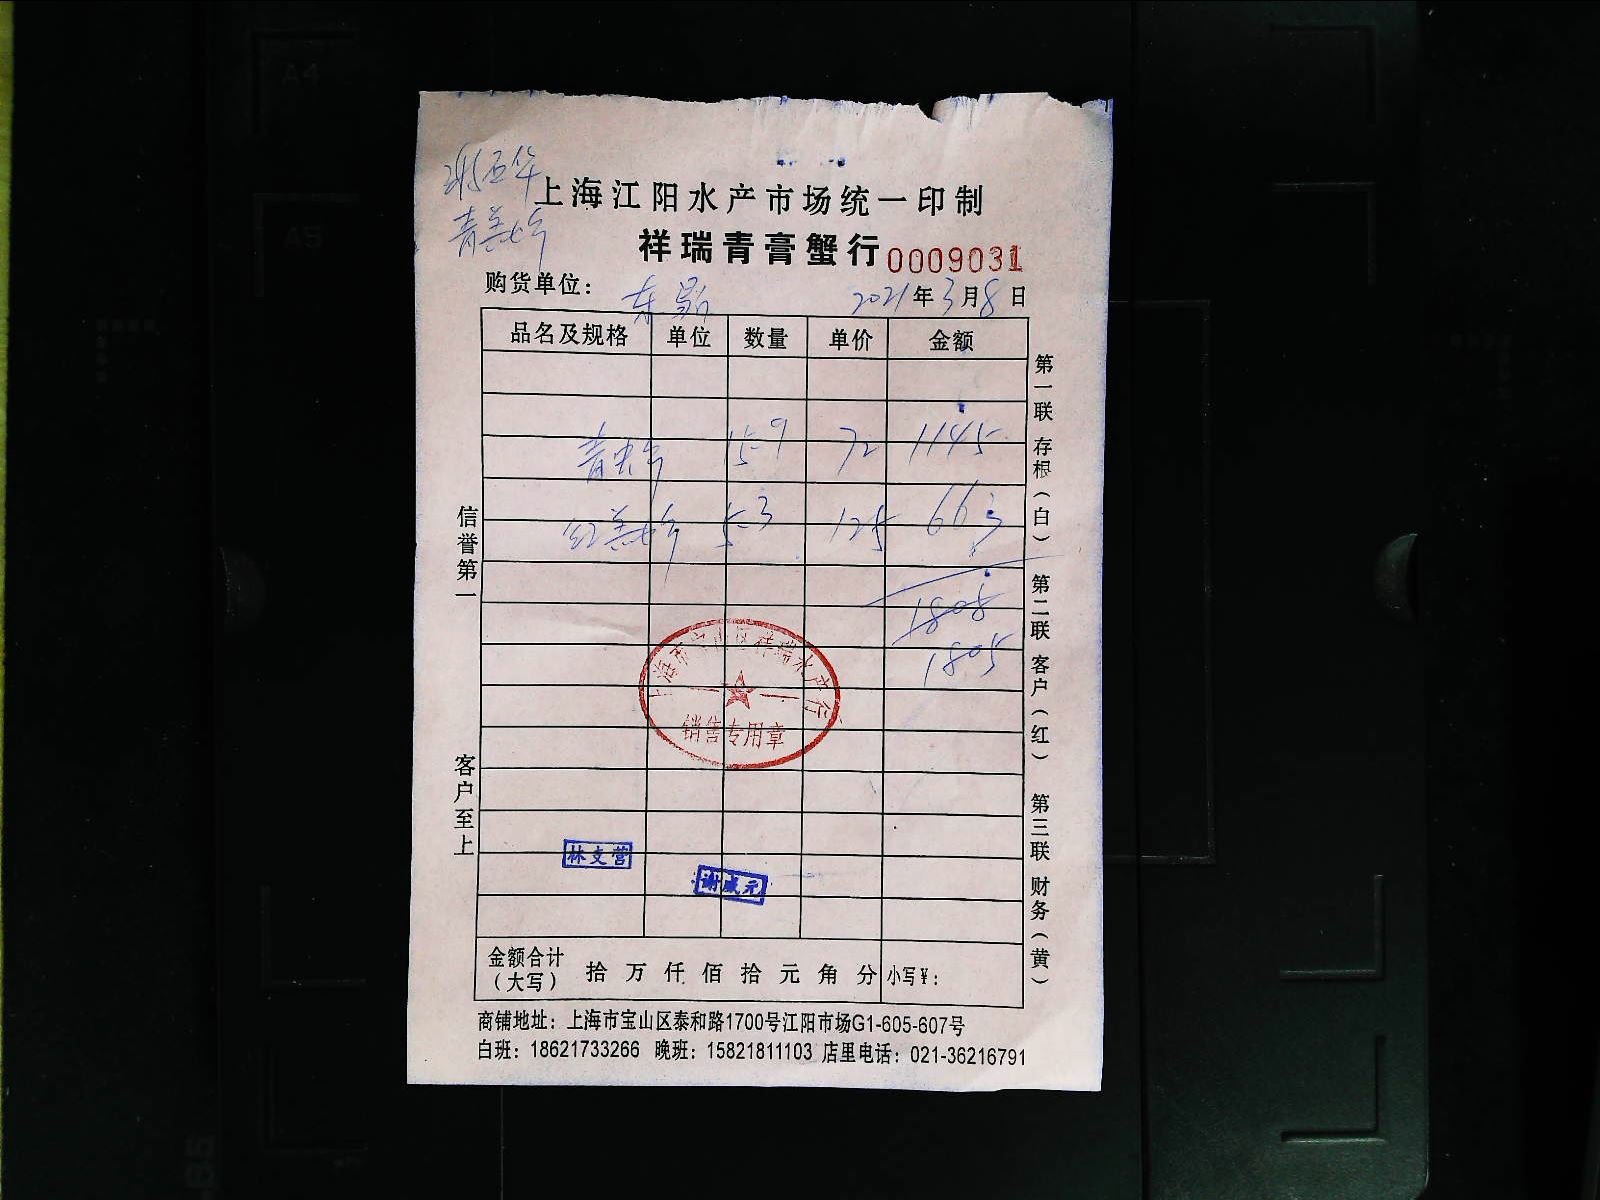 上海江阳水产市场统一印制
祥瑞青膏蟹行 0009031
购货单位： 2021年3月8日
品名及规格 单位 数量 单价 金额
15-9 72 1145
红 5-3 125 663
1808
1805
上海市宝山区祥瑞水产行
销售专用章
林支营
谢威元
金额合计（大写） 拾 万 仟 佰 拾 元 角 分 小写￥：
商铺地址：上海市宝山区泰和路1700号江阳市场G1-605-607号
白班：18621733266 晚班：15821811103 店里电话：021-36216791
信誉第一
客户至上
第一联 存根（白） 第二联 客户（红） 第三联 财务（黄）
A4
A5